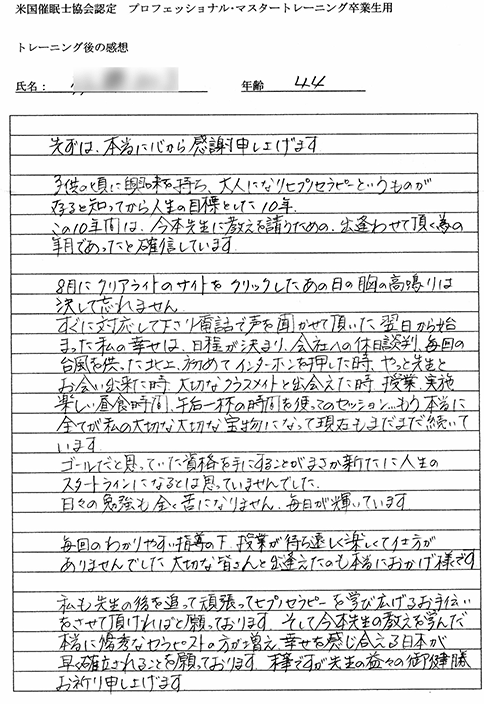 米国催眠士協会認定　プロフェッショナル・マスタートレーニング卒業生用
トレーニング後の感想
氏名：　　年齢　44
先ずは、本当に心から感謝申し上げます
子供の頃に興味を持ち、大人になりヒプノセラピーというものが
存ると知ってから人生の目標とした10年。
この10年間は、今本先生に教えを請うための、出逢わせて頂く為の
年月であったと確信しています。
8月にクリアライトのサイトをクリックしたあの日の胸の高鳴りは
決して忘れません。
すぐに対応して下さり電話で声を聞かせて頂いた翌日から始
まった私の幸せは、日程が決まり、会社への休日談判、毎回の
台風を供った北上、初めてインターホンを押した時、やっと先生と
お会い出来た時、大切なクラスメイトと出会えた時、授業、実施
楽しい昼食時間、午后一杯の時間を使ってのセッション…もう本当に
全てが私の大切な大切な宝物になって現在もまだまだ続いて
います。
ゴールだと思っていた資格を手にすることがまさか新たに人生の
スタートラインになるとは思っていませんでした。
日々の勉強も全く苦になりません。毎日が輝いています。
毎回のわかりやすい指導の下、授業が待ち遠しく楽しくて仕方が
ありませんでした 大切な皆さんと出逢えたのも本当におかげ様です
私も先生の後を追って頑張ってヒプノセラピーを学び広げるお手伝い
をさせて頂ければと願っております。そして今本先生の教えを学んだ
本当に優秀なセラピストの方が増え、幸せを感じ合える日本が
早く確立されることを願っております。末筆ですが先生の益々の御健勝
お祈り申し上げます